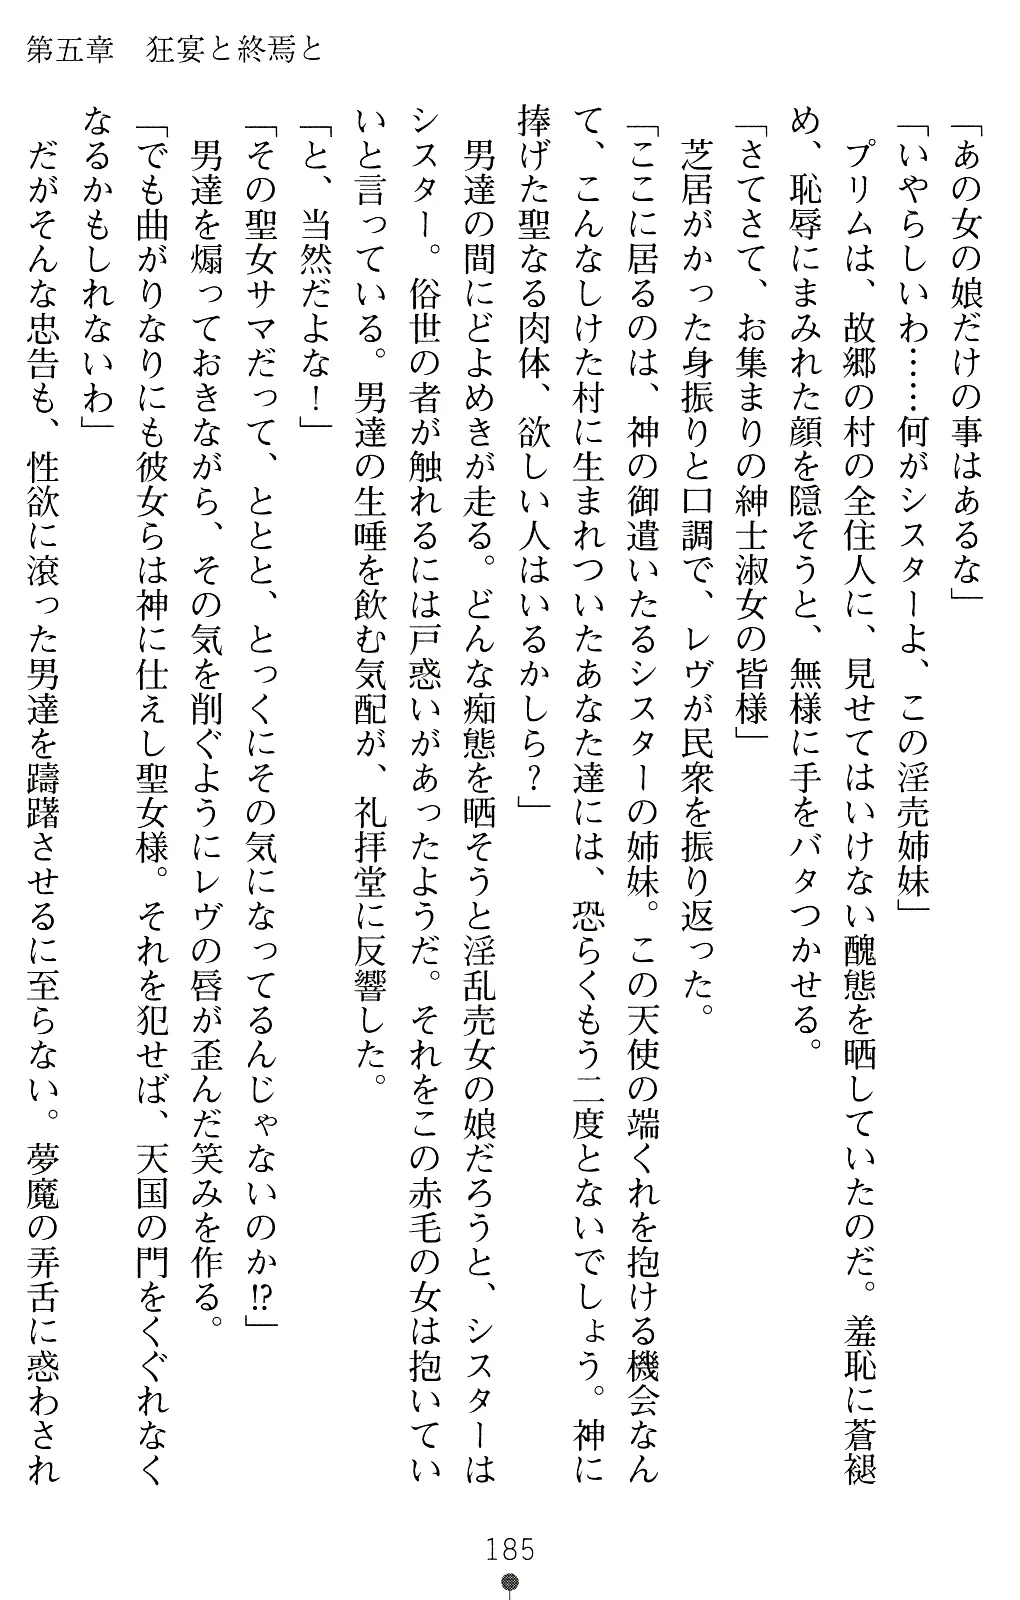 第五章　狂宴と終焉と
「あの女の娘だけの事はあるな」
「いやらしいわ……何がシスターよ、この淫売姉妹」
　プリムは、故郷の村の全住人に、見せてはいけない醜態を晒していたのだ。羞恥に蒼褪
め、恥辱にまみれた顔を隠そうと、無様に手をバタつかせる。
「さてさて、お集まりの紳士淑女の皆様」
　芝居がかった身振りと口調で、レヴが民衆を振り返った。
「ここに居るのは、神の御遣いたるシスターの姉妹。この天使の端くれを抱ける機会なん
て、こんなしけた村に生まれついたあなた達には、恐らくもう二度とないでしょう。神に
捧げた聖なる肉体、欲しい人はいるかしら？」
　男達の間にどよめきが走る。どんな痴態を晒そうと淫乱売女の娘だろうと、シスターは
シスター。俗世の者が触れるには戸惑いがあったようだ。それをこの赤毛の女は抱いてい
いと言っている。男達の生唾を飲む気配が、礼拝堂に反響した。
「と、当然だよな！」
「その聖女サマだって、ととと、とっくにその気になってるんじゃないのか!?」
　男達を煽っておきながら、その気を削ぐようにレヴの唇が歪んだ笑みを作る。
「でも曲がりなりにも彼女らは神に仕えし聖女様。それを犯せば、天国の門をくぐれなく
なるかもしれないわ」
　だがそんな忠告も、性欲に滾った男達を躊躇させるに至らない。夢魔の弄舌に惑わされ
185